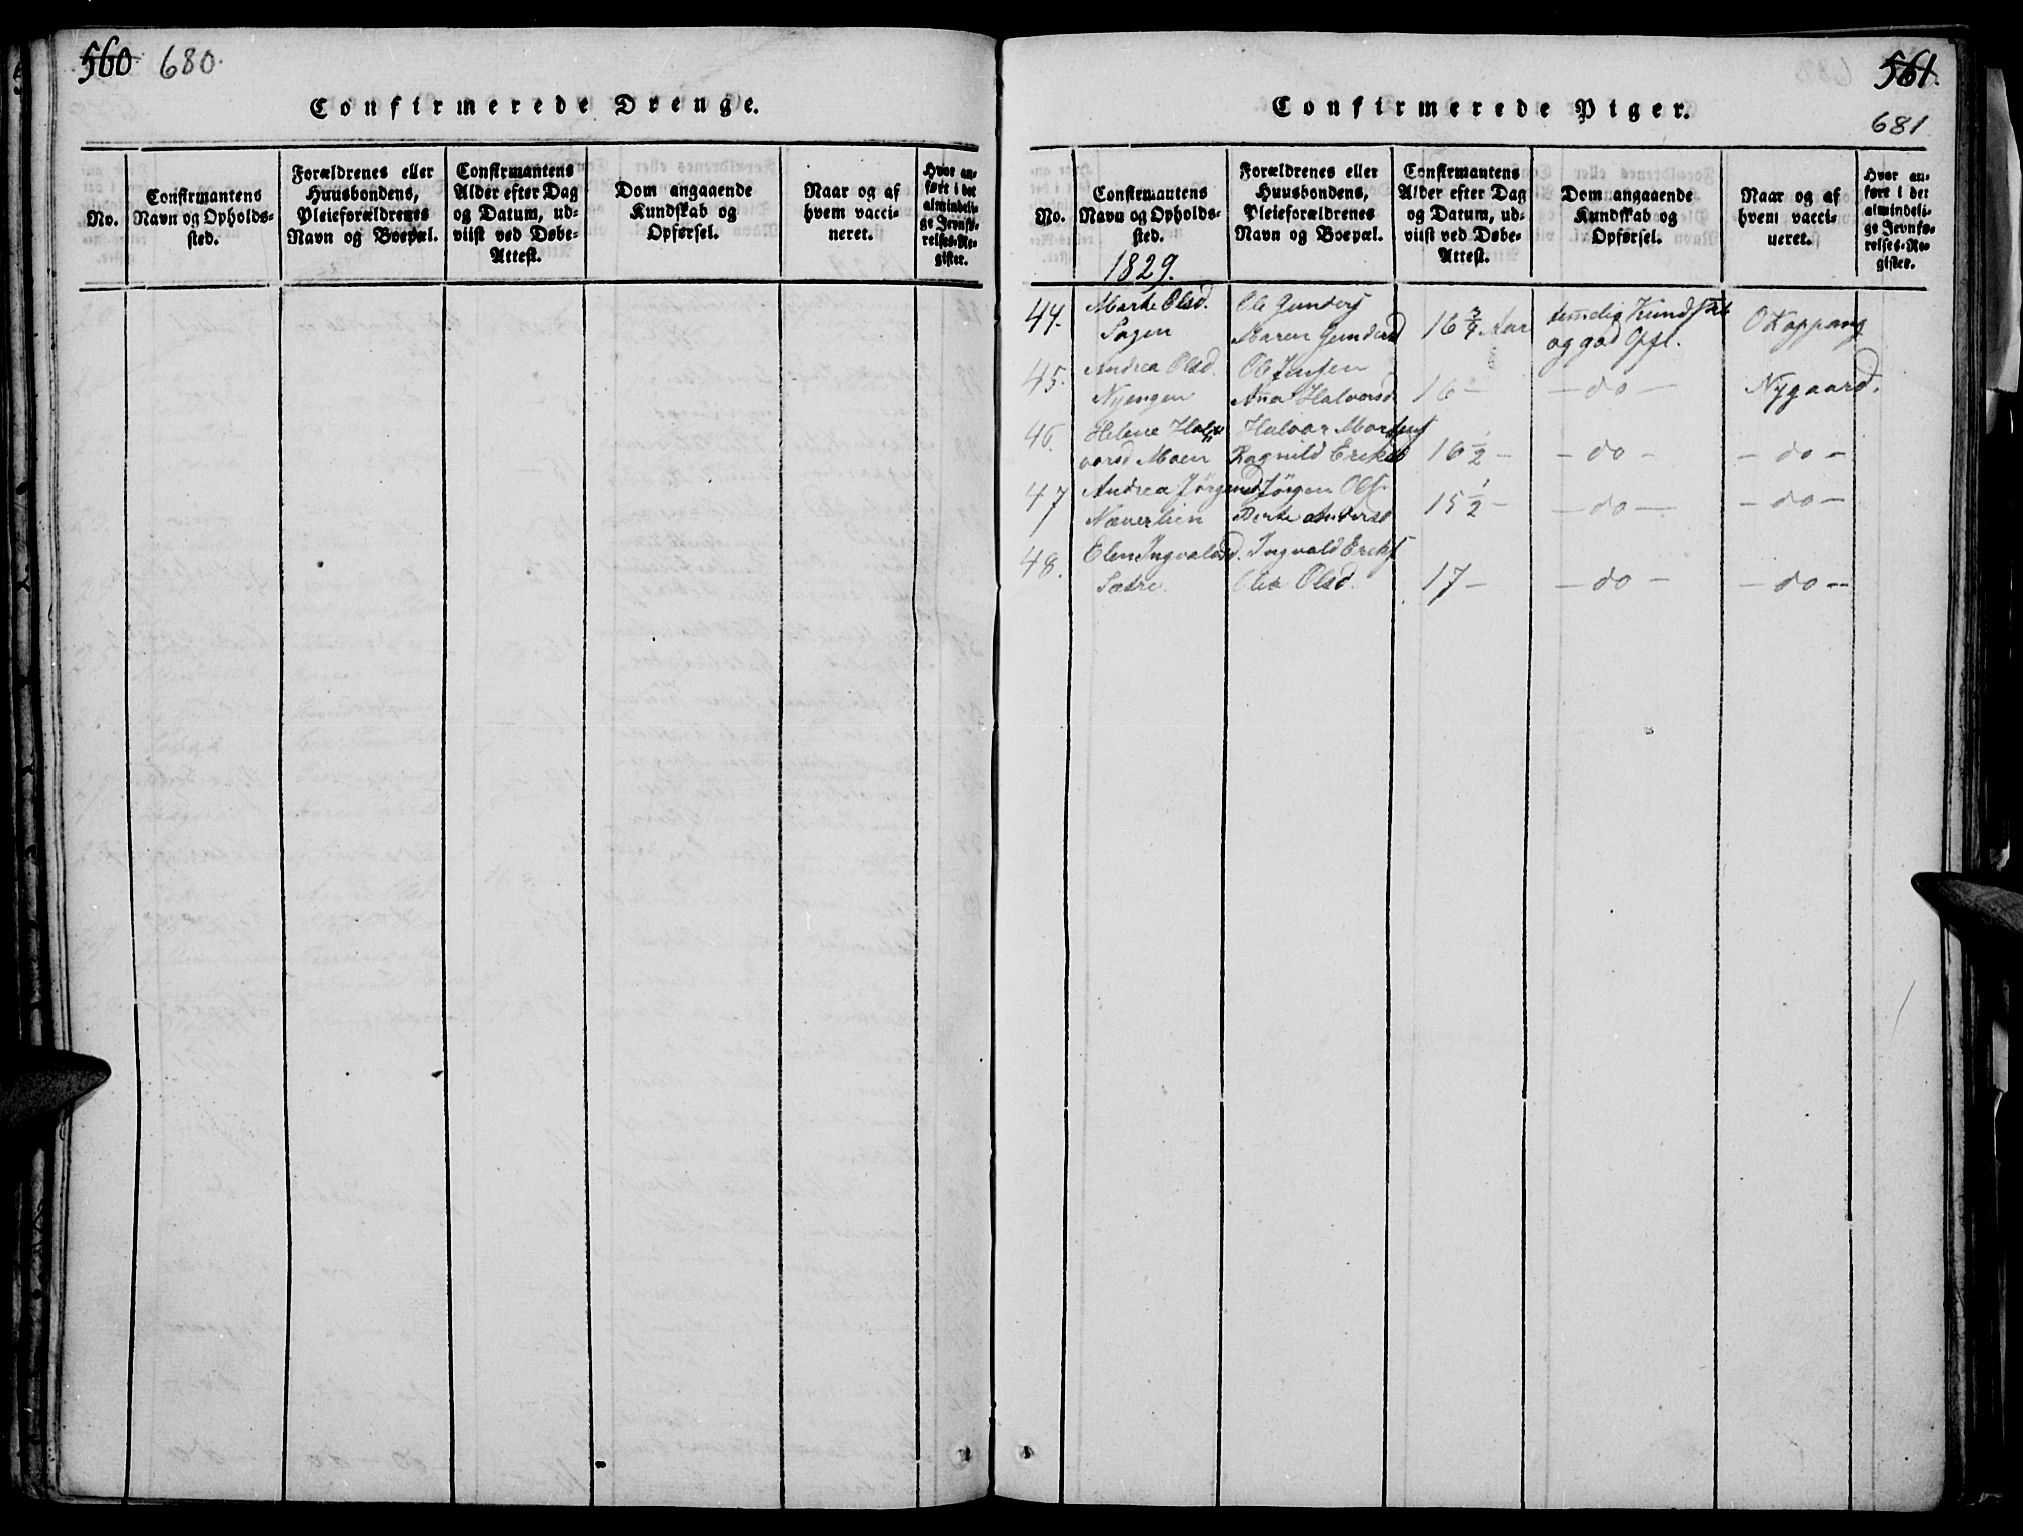 560 680.
Confirmerede Drenge.
No.
Confirmantens
Navn og Opholds-
sted.
Forældrenes eller
Huusbondens,
Pleieforældrenes
Navn og Boepæl.
Confirmantens
Alder efter Dag
og Datum, ud-
viist ved Døbe-
Attest.
Dom angaaende
Kundskab og
Opførsel.
Naar og af
hvem vacci-
neret.
Hvor an-
ført i det
almindeli-
ge Jevnfø-
relses-Re-
gister.
561.
681
Confirmerede Piger.
No.
Confirmantens
Navn og Opholds-
sted.
1829.
Forældrenes eller
Huusbondens,
Pleieforældrenes
Navn og Boepæl.
Confirmantens
Alder efter Dag
og Datum, ud-
viist ved Døbe-
Attest.
Dom angaaende
Kundskab og
Opførsel.
Naar og af
hvem vacci-
neret.
Hvor an-
ført i det
almindeli-
ge Jevnfø-
relses-Re-
gister.
44. Marte Olsd. Ole Gunders
Sagen Maren Gundersd 16 3/4 Aar temelig Kundskab og god Opf. O Koppang
45. Andrea Olsd. Ole Jensen
Nyengen Anna Halvorsd 16 - - do - Nygaard.
46. Helene Hal- Halvor Mortens
vorsd Moen Ragnild Ericksd 16 1/2 - - do - - do -
47 Andrea Jørgensd Jørgen Ols.
Næverlien Berte Andersd 15 1/2 - - do - - do -
48. Elen Ingvaldsd. Ingvald Ericks
Sætre. Olea Olsd. 17 - - do - - do -